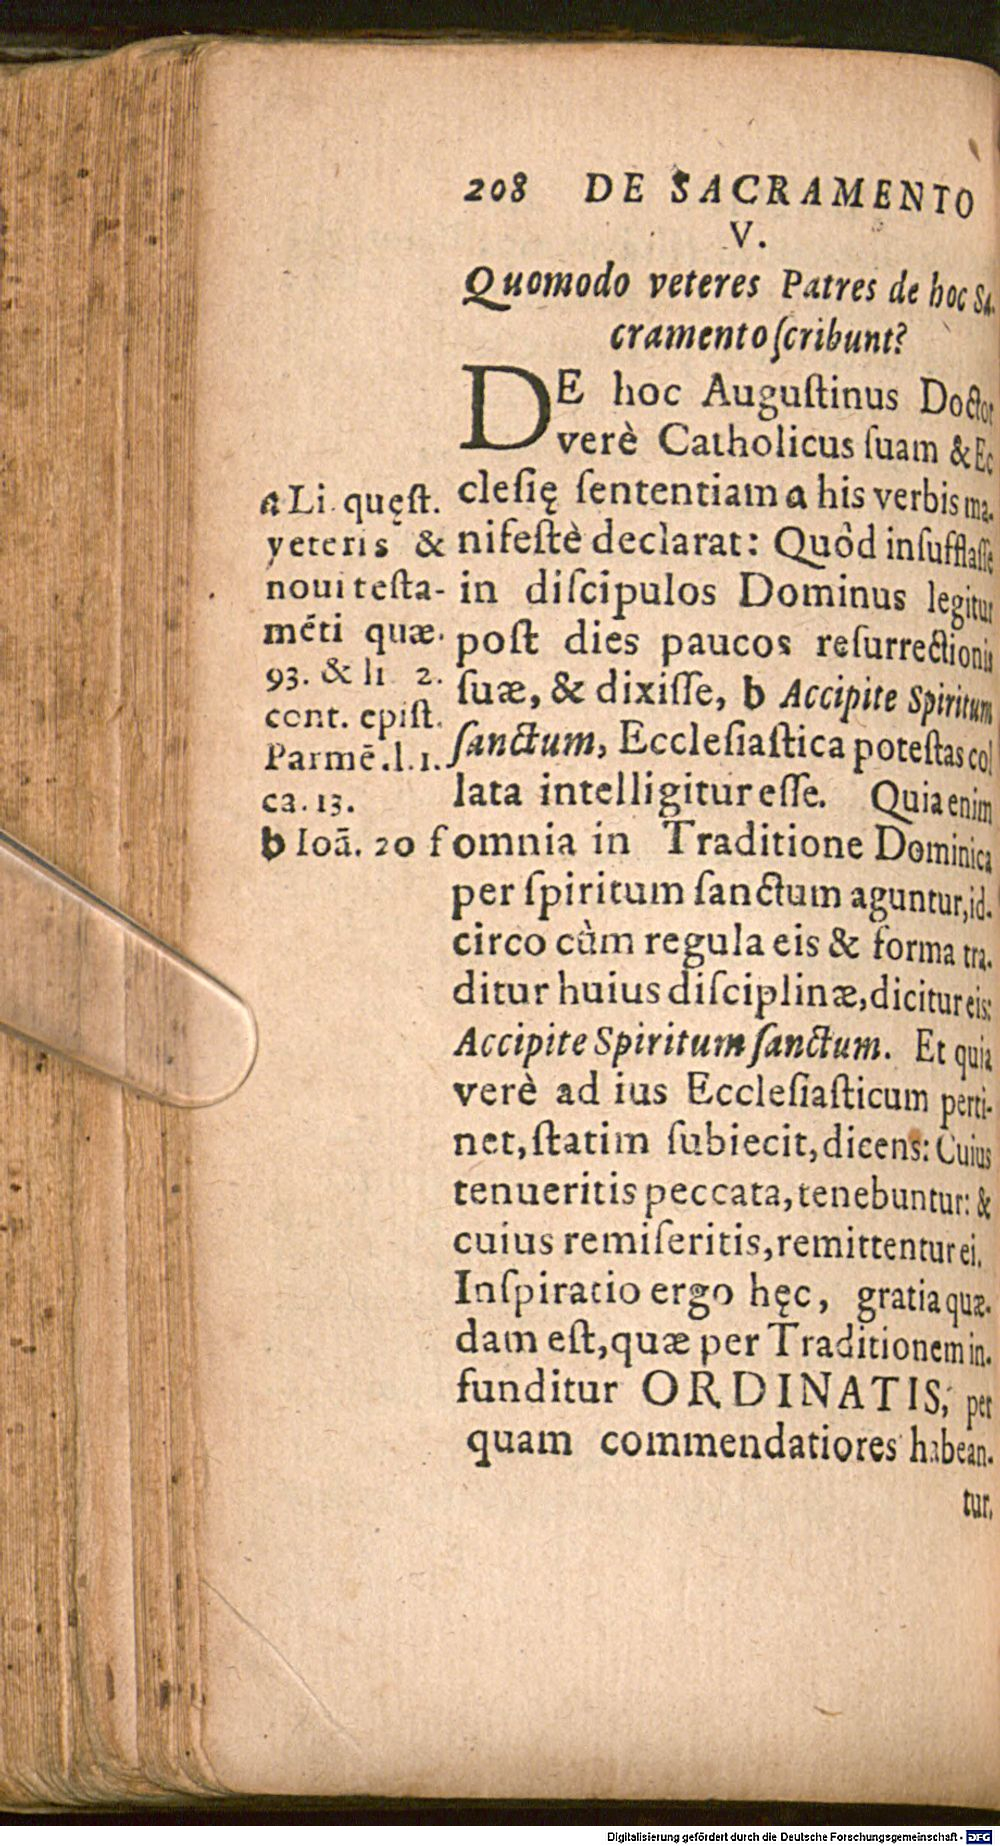 208 DE SACRAMENTO
V.
Quomodo veteres Patres de hoc Sa-
cramento ſcribunt?
DE hoc Auguſtinus Doctor
verè Catholicus ſuam & Ec
cleſię ſententiam a his verbis ma-
nifeſtè declarat: Quòd inſufflaſſe
in diſcipulos Dominus legitur
poſt dies paucos reſurrectionis
ſuæ, & dixiſſe, b Accipite Spiritum
ſanctum, Eccleſiaſtica poteſtas col
lata intelligitur eſſe. Quia enim
omnia in Traditione Dominica
per ſpiritum ſanctum aguntur, id-
circo cùm regula eis & forma tra-
ditur huius diſciplinæ, dicitur eis:
Accipite Spiritum ſanctum. Et quia
verè ad ius Eccleſiaſticum perti-
net, ſtatim ſubiecit, dicens: Cuius
tenueritis peccata, tenebuntur: &
cuius remiſeritis, remittentur ei.
Inſpiratio ergo hęc, gratia quæ-
dam eſt, quæ per Traditionem in-
funditur ORDINATIS, per
quam commendatiores habean-
tur.
a Li. quęſt.
veteris &
noui teſta-
mēti quæ.
93. & li 2.
cont. epiſt.
Parmē. l. 1.
ca. 13.
b Ioā. 20 f
Digitalisierung gefördert durch die Deutsche Forschungsgemeinschaft - DFG